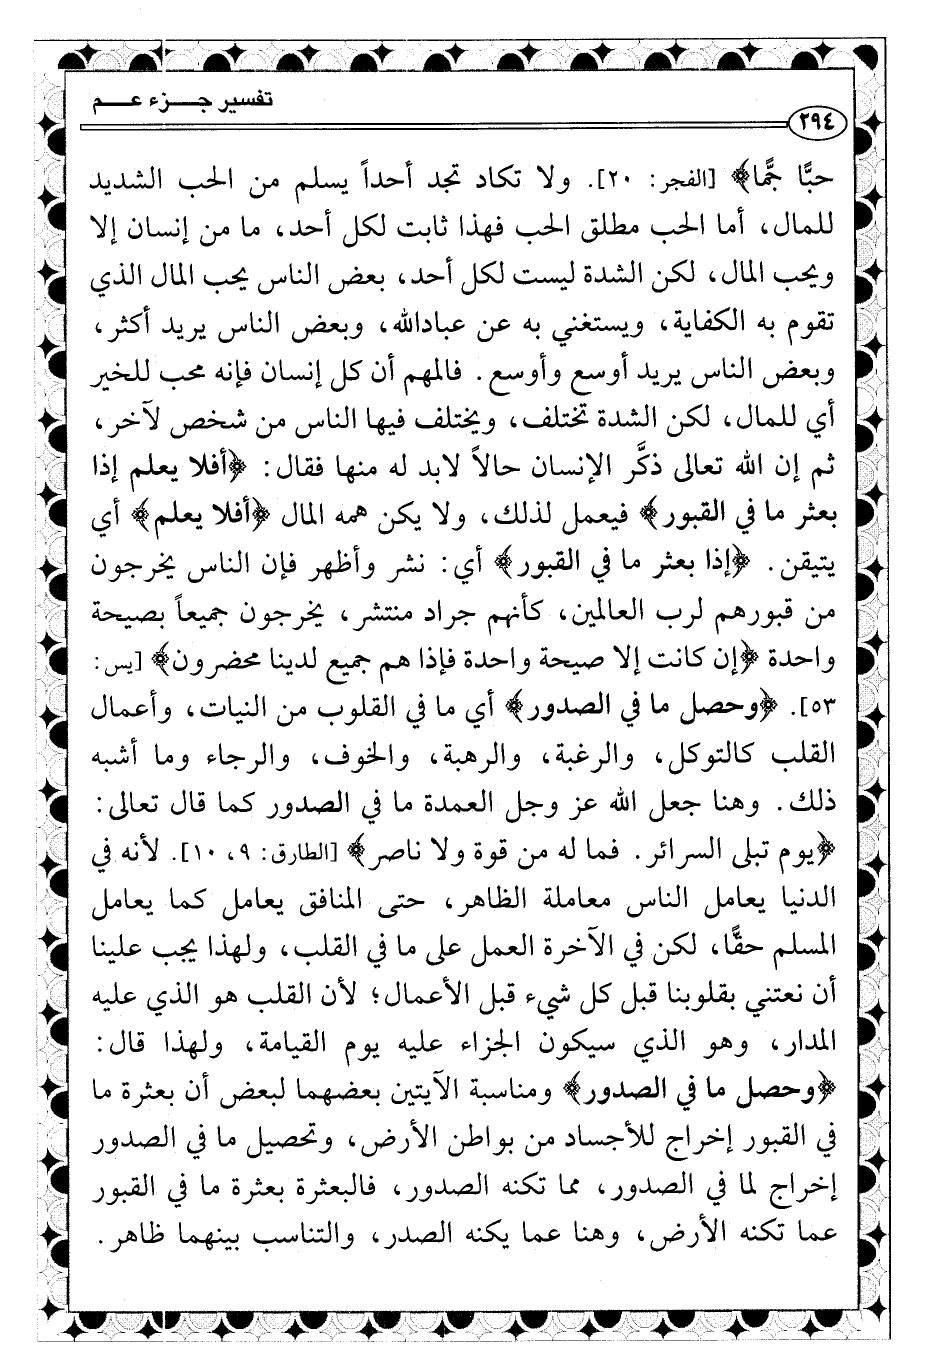 تفسير جـــزء عـــم
٢٩٤
حبًّا جمًّا﴾ [الفجر: ٢٠]. ولا تكاد تجد أحداً يسلم من الحب الشديد
للمال، أما الحب مطلق الحب فهذا ثابت لكل أحد، ما من إنسان إلا
ويحب المال، لكن الشدة ليست لكل أحد، بعض الناس يحب المال الذي
تقوم به الكفاية، ويستغني به عن عبادالله، وبعض الناس يريد أكثر،
وبعض الناس يريد أوسع وأوسع. فالمهم أن كل إنسان فإنه محب للخير
أي للمال، لكن الشدة تختلف، ويختلف فيها الناس من شخص لآخر،
ثم إن الله تعالى ذكَّر الإنسان حالاً لابد له منها فقال: ﴿أفلا يعلم إذا
بعثر ما في القبور﴾ فيعمل لذلك، ولا يكن همه المال ﴿أفلا يعلم﴾ أي
يتيقن. ﴿إذا بعثر ما في القبور﴾ أي: نشر وأظهر فإن الناس يخرجون
من قبورهم لرب العالمين، كأنهم جراد منتشر، يخرجون جميعاً بصيحة
واحدة ﴿إن كانت إلا صيحة واحدة فإذا هم جميع لدينا محضرون﴾ [يس:
٥٣]. ﴿وحصل ما في الصدور﴾ أي ما في القلوب من النيات، وأعمال
القلب كالتوكل، والرغبة، والرهبة، والخوف، والرجاء وما أشبه
ذلك. وهنا جعل الله عز وجل العمدة ما في الصدور كما قال تعالى:
﴿يوم تبلى السرائر. فما له من قوة ولا ناصر﴾ [الطارق: ٩، ١٠]. لأنه في
الدنيا يعامل الناس معاملة الظاهر، حتى المنافق يعامل كما يعامل
المسلم حقًّا، لكن في الآخرة العمل على ما في القلب، ولهذا يجب علينا
أن نعتني بقلوبنا قبل كل شيء قبل الأعمال؛ لأن القلب هو الذي عليه
المدار، وهو الذي سيكون الجزاء عليه يوم القيامة، ولهذا قال:
﴿وحصل ما في الصدور﴾ ومناسبة الآيتين بعضهما لبعض أن بعثرة ما
في القبور إخراج للأجساد من بواطن الأرض، وتحصيل ما في الصدور
إخراج لما في الصدور، مما تكنه الصدور، فالبعثرة بعثرة ما في القبور
عما تكنه الأرض، وهنا عما يكنه الصدر، والتناسب بينهما ظاهر.